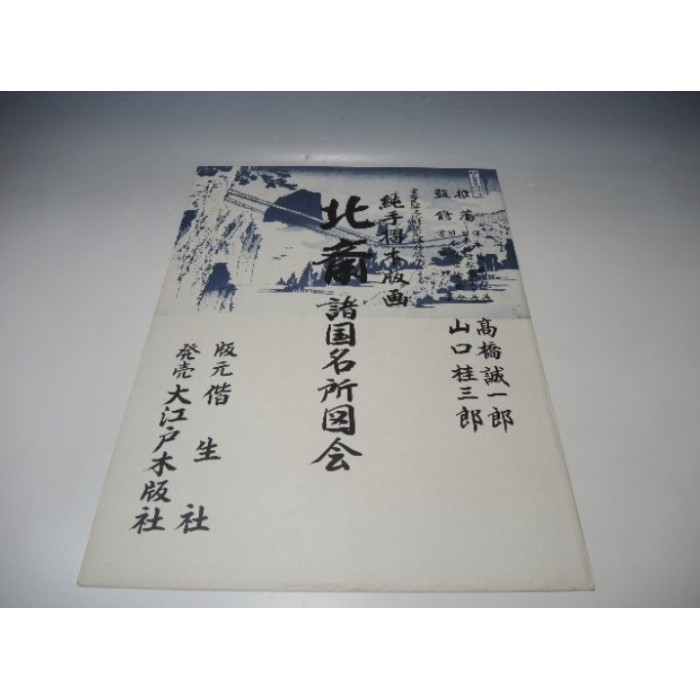 推薦
高橋誠一郎
監修
山口桂三郎
純手摺木版画
北斎諸国名所図会
版元偕生社
発売大江戸木版社